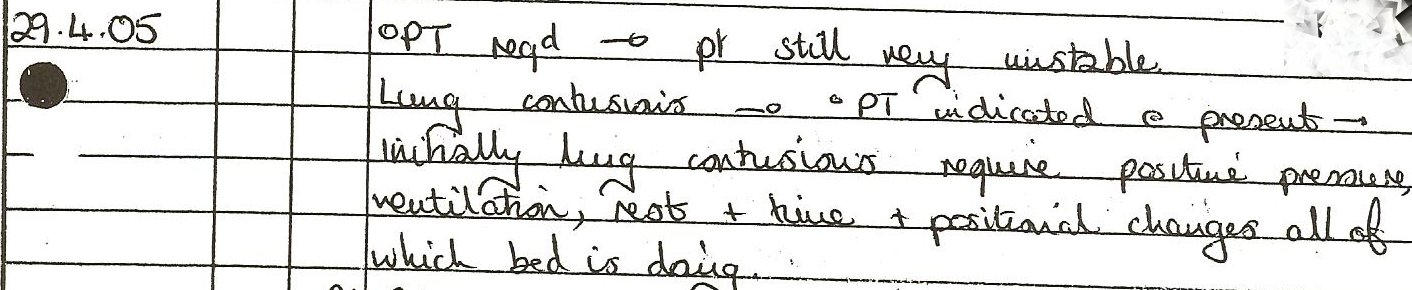 29.4.05 OPT reqd → pt still very unstable.
Lung contusions → °PT indicated @ present →
initially lung contusions require positive pressure,
ventilation, rest + time + positional changes all of
which bed is doing.